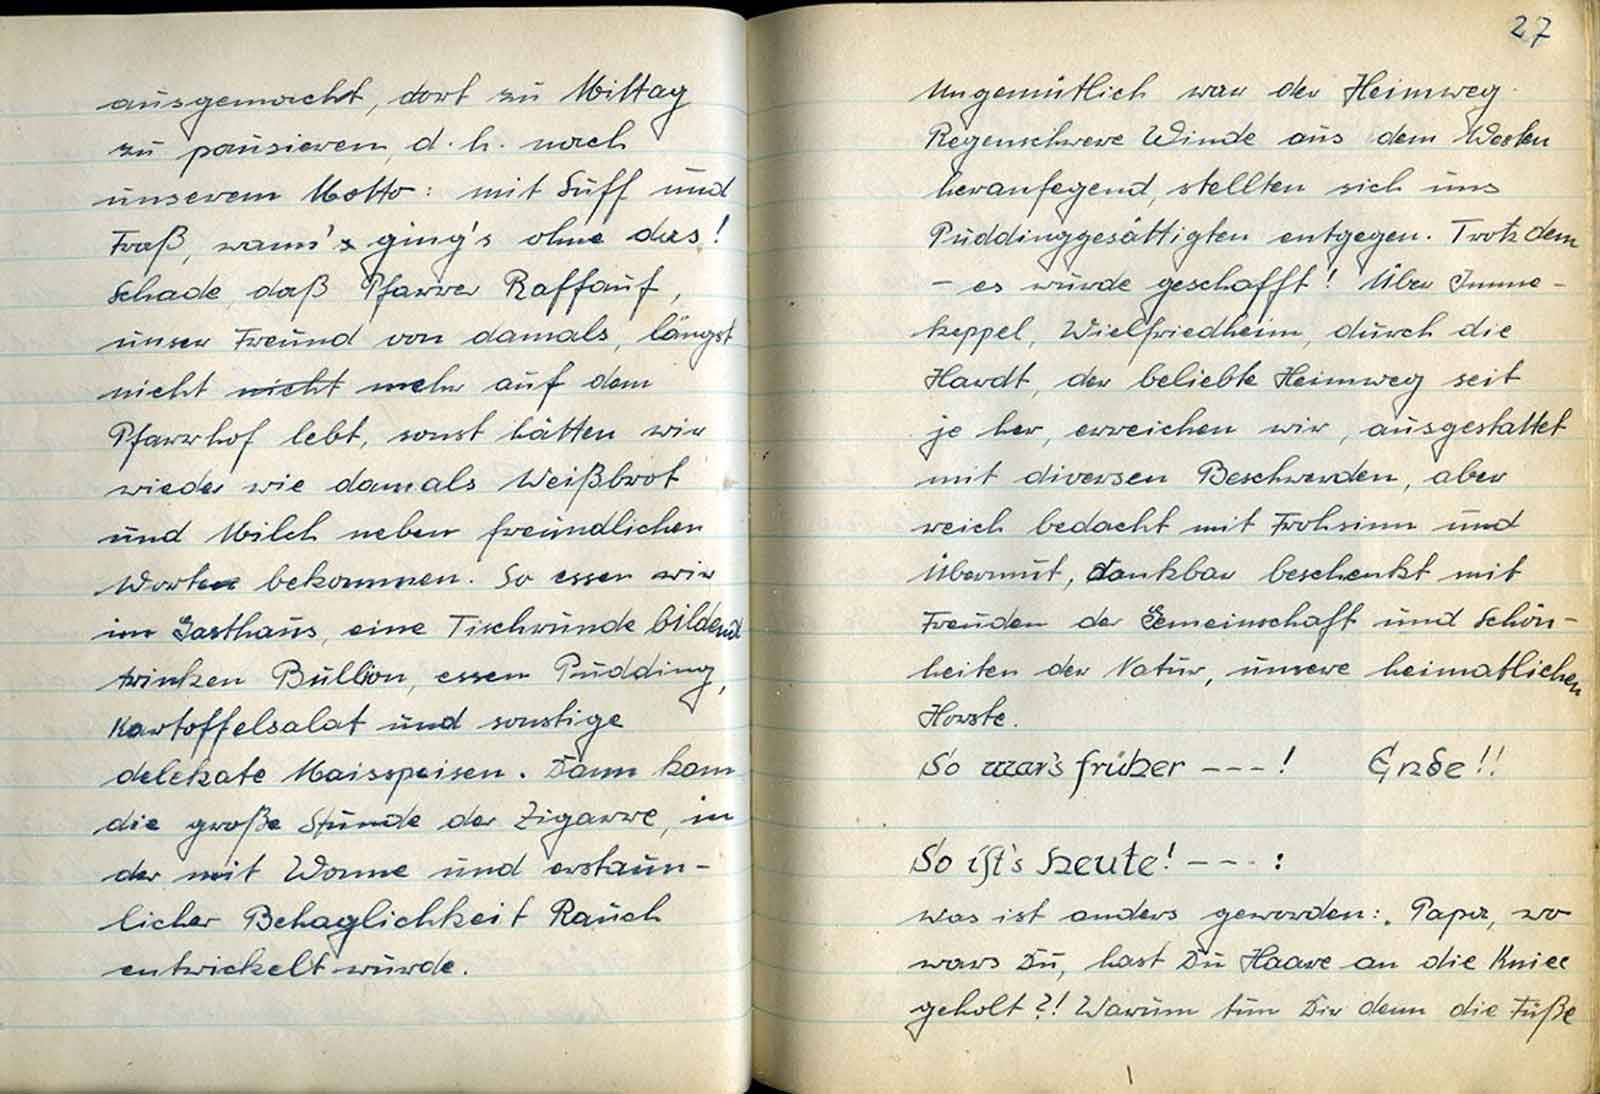 ausgemacht, dort zu Mittag
zu pausieren, d. h. nach
unserem Motto: mit Suff und
Fraß, wann's ging's ohne das!
Schade, daß Pfarrer Raffauf,
unser Freund von damals, längst
nicht nicht mehr auf dem
Pfarrhof lebt, sonst hätten wir
wieder wie damals Weißbrot
und Milch neben freundlichen
Worten bekommen. So essen wir
im Gasthaus, eine Tischrunde bildend
trinken Bullion, essen Pudding,
Kartoffelsalat und sonstige
delekate Maisspeisen. Dann kam
die große Stunde der Zigarre, in
der mit Wonne und erstaun-
licher Behaglichkeit Rauch
entwickelt wurde.
27
Ungemütlich war der Heimweg.
Regenschwere Winde aus dem Westen
heranfegend, stellten sich uns
Puddinggesättigten entgegen. Trotzdem
– es wurde geschafft! Über Imme-
keppel, Wielfriedheim, durch die
Hardt, der beliebte Heimweg seit
je her, erreichen wir, ausgestattet
mit diversen Beschwerden, aber
reich bedacht mit Frohsinn und
Übermut, dankbar beschenkt mit
Freuden der Gemeinschaft und Schön-
heiten der Natur, unsere heimatlichen
Horste.
So war's früher ---! Ende!!
So ist's heute! ---:
Was ist anders geworden: Papa, wo
wars Du, hast Du Haare an die Kniee
geholt?! Warum tun Dir denn die Füße